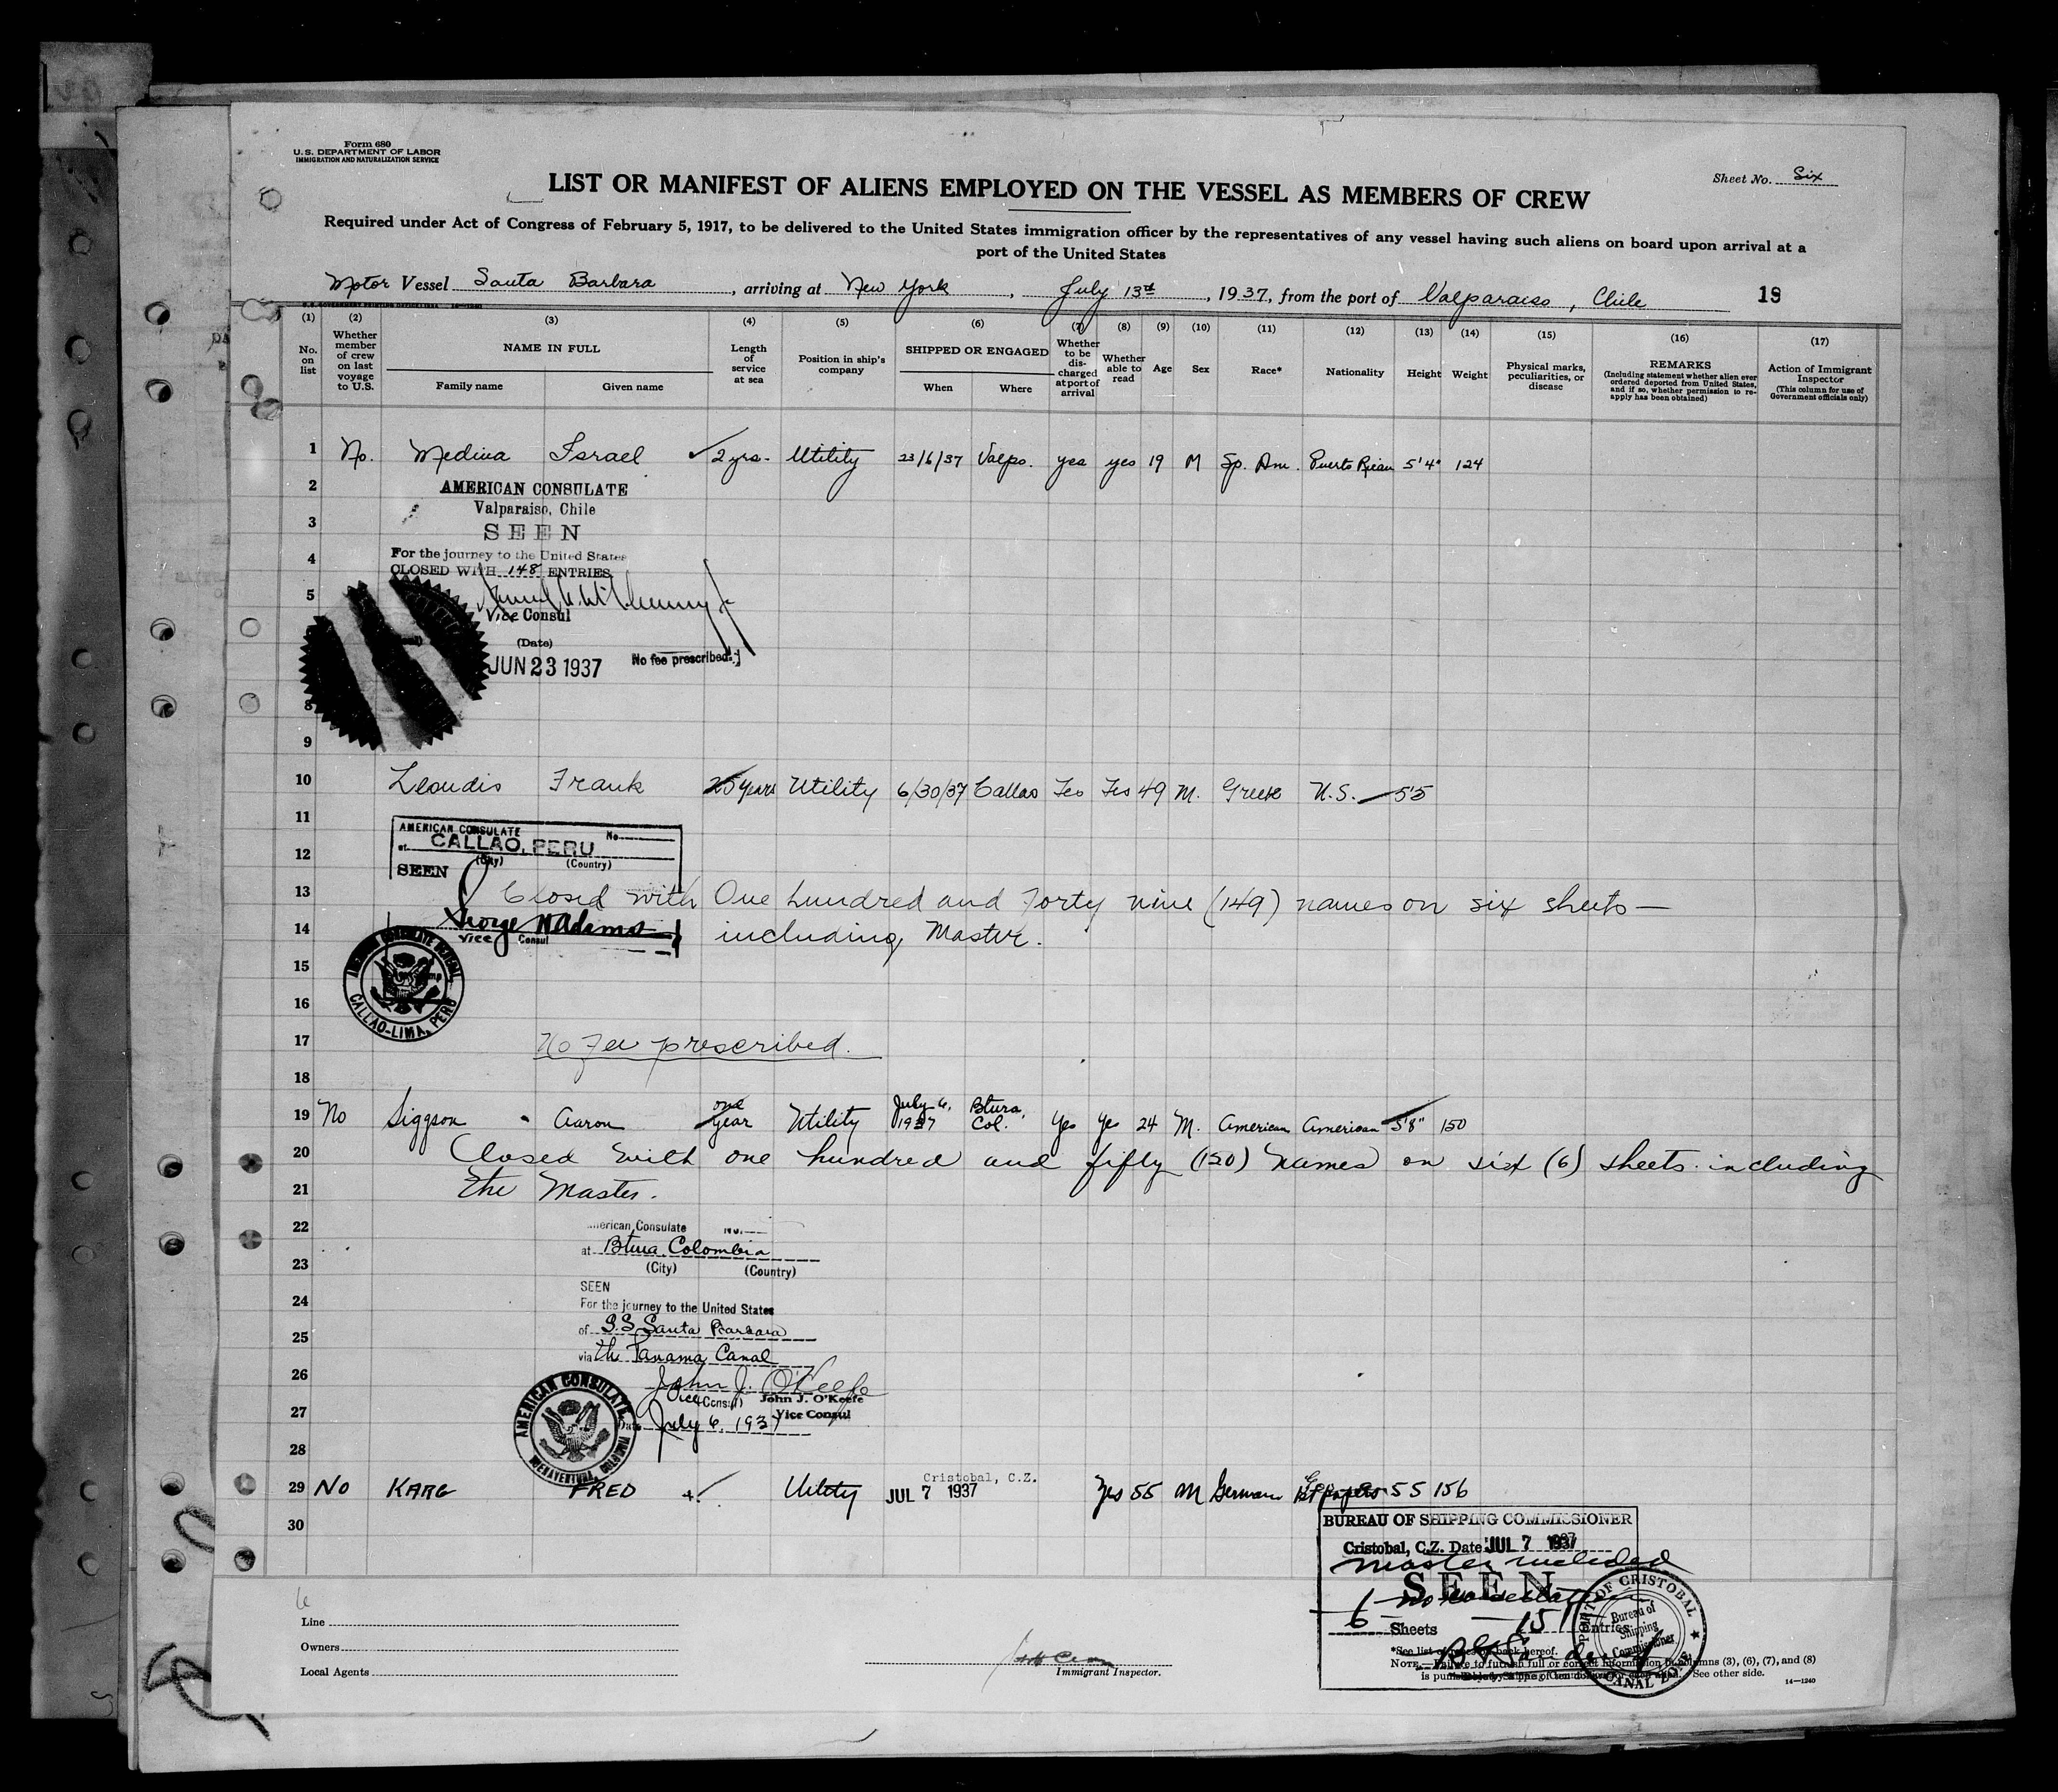 Form 680
U.S. DEPARTMENT OF LABOR
IMMIGRATION AND NATURALIZATION SERVICE
Sheet No. Six
LIST OR MANIFEST OF ALIENS EMPLOYED ON THE VESSEL AS MEMBERS OF CREW
Required under Act of Congress of February 5, 1917, to be delivered to the United States immigration officer by the representatives of any vessel having such aliens on board upon arrival at a
port of the United States
Motor Vessel Santa Barbara, arriving at New York, July 13th, 1937, from the port of Valparaiso, Chile 19
(1) No. on list
(2) Whether member of crew on last voyage to U.S.
(3) NAME IN FULL Family name Given name
(4) Length of service at sea
(5) Position in ship's company
(6) SHIPPED OR ENGAGED When Where
(7) Whether to be discharged at port of arrival
(8) Whether able to read
(9) Age
(10) Sex
(11) Race*
(12) Nationality
(13) Height
(14) Weight
(15) Physical marks, peculiarities, or disease
(16) REMARKS (Including statement whether alien ever ordered deported from United States, and if so, whether permission to re-apply has been obtained)
(17) Action of Immigrant Inspector (This column for use of Government officials only)
1 No. Medina Israel 2 yrs. Utility 23/6/37 Valpo. yes yes 19 M Sp. Am. Puerto Rican 5'4" 124
2 AMERICAN CONSULATE
Valparaiso, Chile
3 SEEN
4 For the journey to the United States
CLOSED WITH 148 ENTRIES
5
Vice Consul
(Date)
JUN 23 1937 No fee prescribed.
8
9
10 Leoudis Frank 25 years Utility 6/30/37 Callao Yes Yes 49 M. Greek U.S. 5'5
11
AMERICAN CONSULATE No.
at CALLAO, PERU
12 (City) (Country)
SEEN
13 Closed with One hundred and Forty nine (149) names on six sheets —
George W Adams
14 Vice Consul including Master.
15
AMERICAN CONSULATE GENERAL CALLAO-LIMA, PERU
16
17 No Fee prescribed.
18
19 No Siggson Aaron one year Utility July 6, 1937 Btura, Col. Yes Yes 24 M. American American 5'8" 150
20 Closed with one hundred and fifty (150) names on six (6) sheets including
21 the Master.
22 American Consulate No.
at Btura, Colombia
23 (City) (Country)
SEEN
24 For the journey to the United States
25 of S.S Santa Barbara
via the Panama Canal
26 John J. O'Keefe
Vice Consul John J. O'Keefe
27 Vice Consul
Date July 6, 1937
AMERICAN CONSULATE BUENAVENTURA, COLOMBIA
28
29 No KARG FRED Utility JUL 7 1937 Cristobal, C.Z. Yes 55 M German 1st papers 5 5 156
30
BUREAU OF SHIPPING COMMISSIONER
Cristobal, C.Z. Date JUL 7 1937
Master included
SEEN
6 Sheets 151 Entries
PORT OF CRISTOBAL CANAL ZONE
Bureau of Shipping Commissioner
Line
Owners
Local Agents
Immigrant Inspector.
*See list of races on back hereof.
NOTE.—Failure to furnish full or correct information in columns (3), (6), (7), and (8)
is punishable by a fine of ten dollars for each alien. See other side.
14—1240